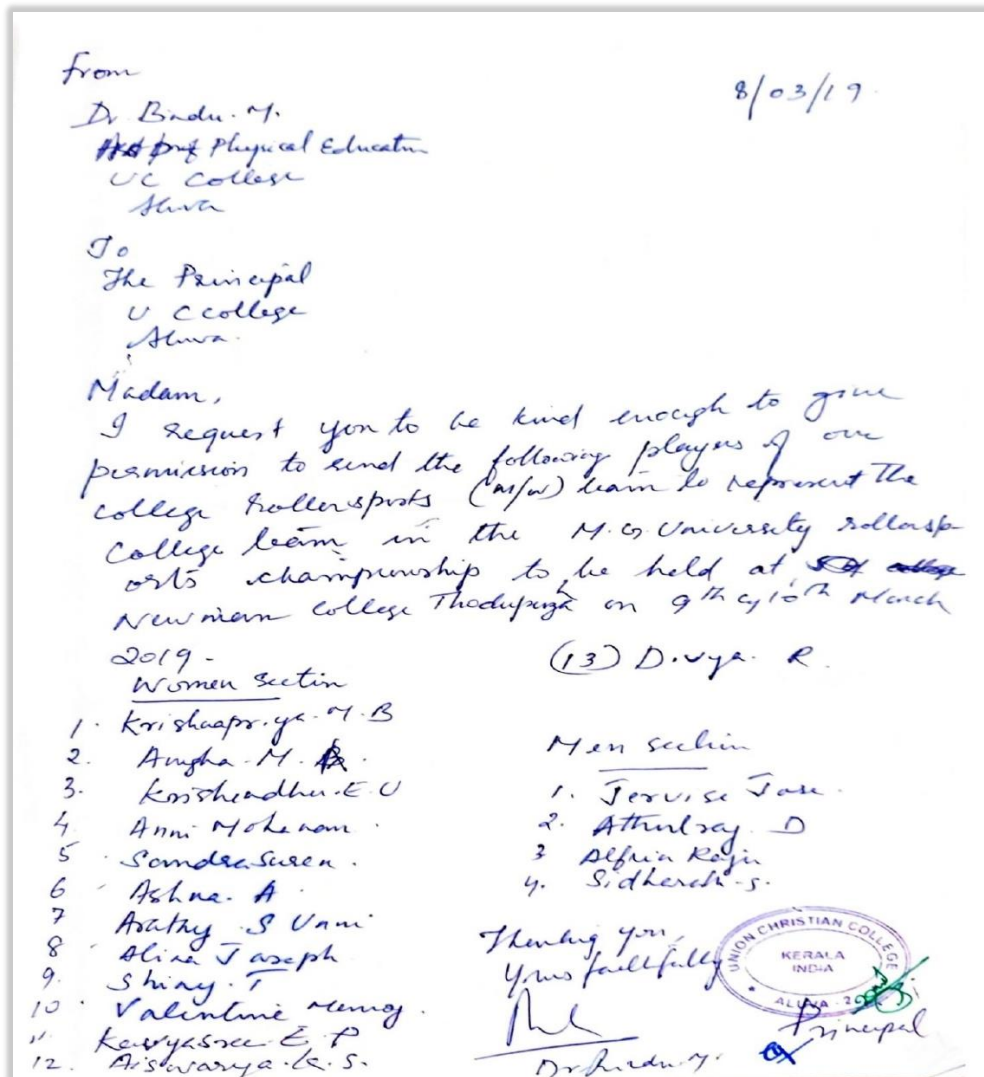 From
8/03/19
Dr. Bindu. M.
Physical Education
UC College
Aluva
To
The Principal
U C College
Aluva.
Madam,
I request you to be kind enough to give
permission to send the following players of our
college Rollersports (M/W) team to represent the
College team in the M.G. University rollersp
orts championship to be held at
Newman College Thodupuzha on 9th & 10th March
2019.
(13) Divya. R.
Women section
1. Krishnapriya. M. B
2. Anugha. M.
3. Krishendhu. E. U
4. Anni Mohanam.
5. Sandra Suren.
6 Ashna. A
7 Arathy S Unni
8 Alina Joseph
9. Shiny. T
10 Valentine
11 Kavyasree E. P
12. Aiswarya. K. S.
Men section
1. Jervise Jose.
2. Athulraj. D
3 Alfria Raju
4. Sidharth. S.
Thanking you,
Yours faithfully
Dr Bindu. M.
UNION CHRISTIAN COLLEGE
KERALA
INDIA
ALUVA - 2
Principal